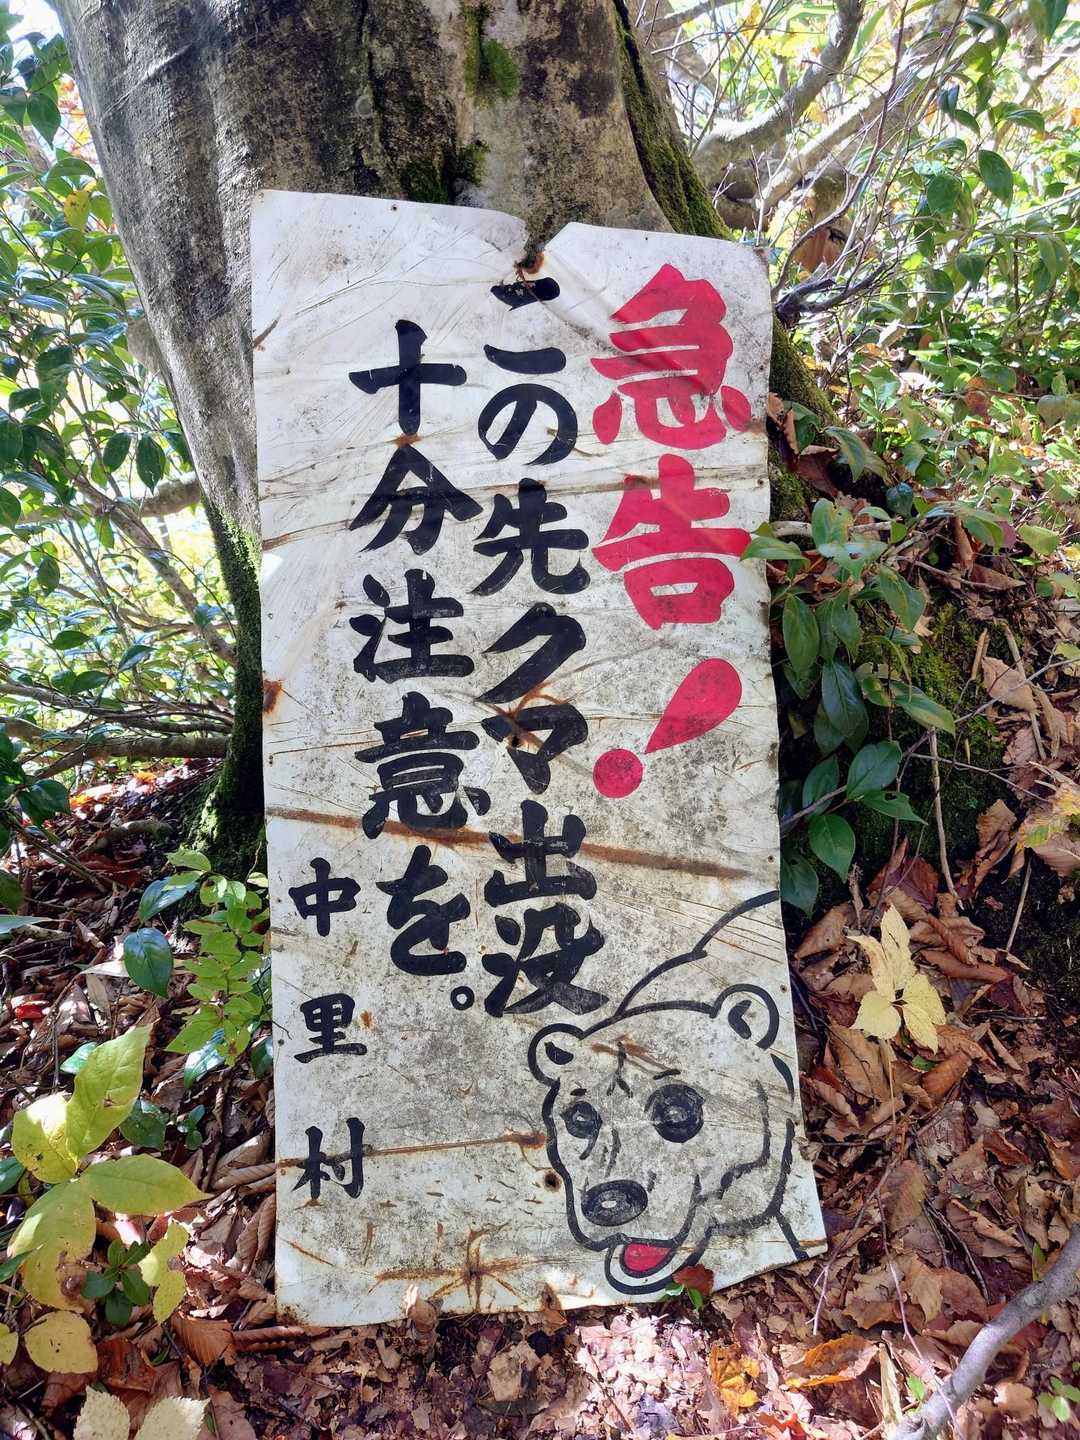 急告!
この先クマ出没
十分注意を。
中里村